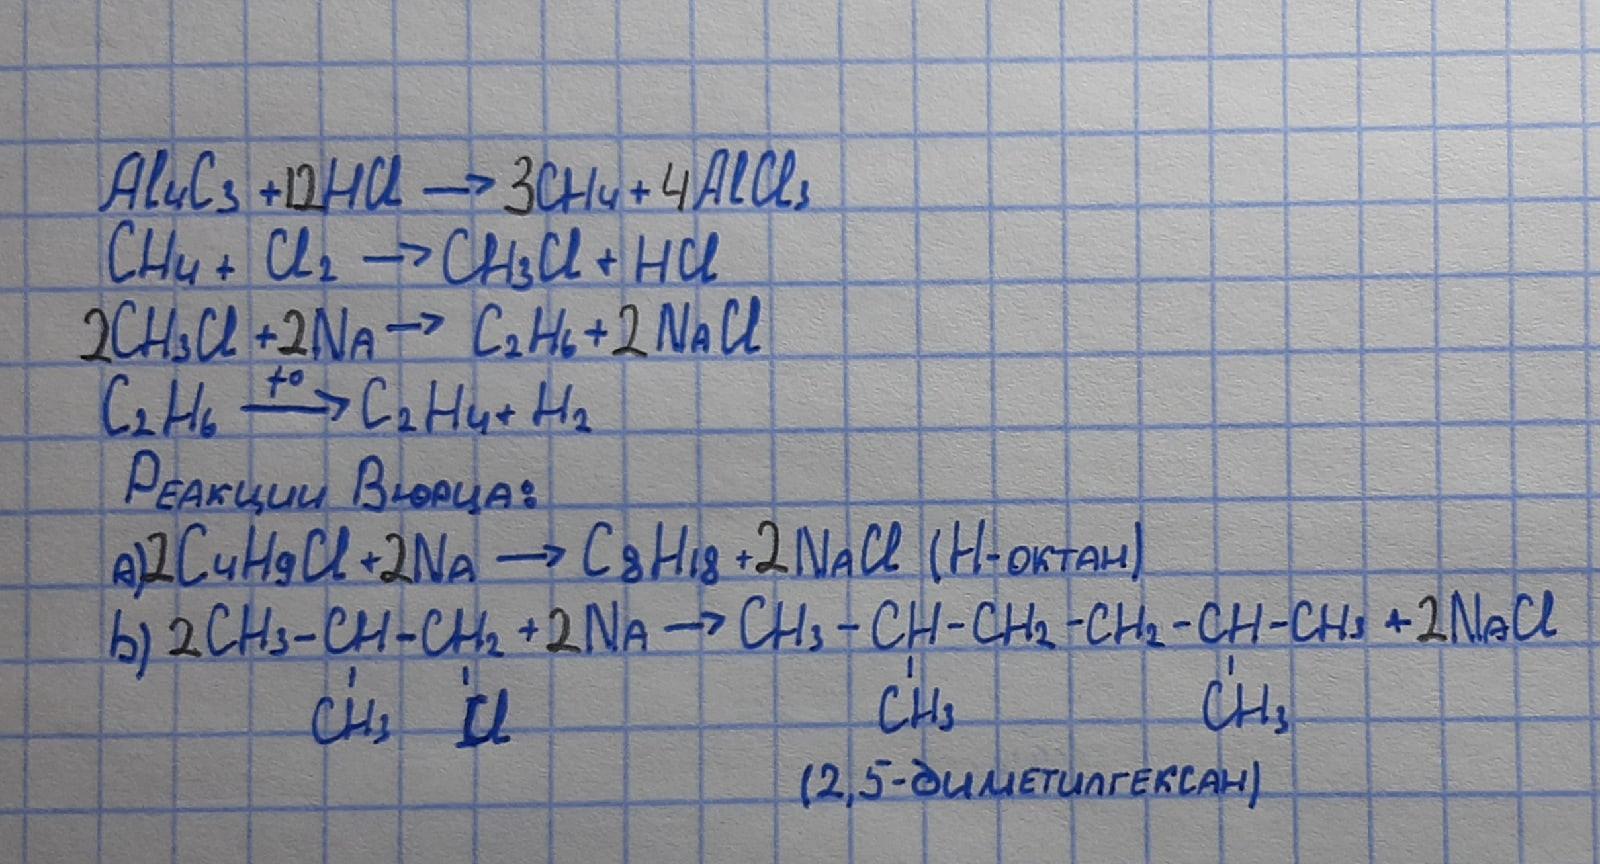 Al₄C₃ + 12HCl → 3CH₄ + 4AlCl₃
CH₄ + Cl₂ → CH₃Cl + HCl
2CH₃Cl + 2Na → C₂H₆ + 2NaCl
C₂H₆ →(t°) C₂H₄ + H₂
Реакции Вюрца:
а) 2C₄H₉Cl + 2Na → C₈H₁₈ + 2NaCl (Н-октан)
b) 2CH₃-CH-CH₂ + 2Na → CH₃-CH-CH₂-CH₂-CH-CH₃ + 2NaCl
CH₃ Cl CH₃ CH₃
(2,5-диметилгексан)